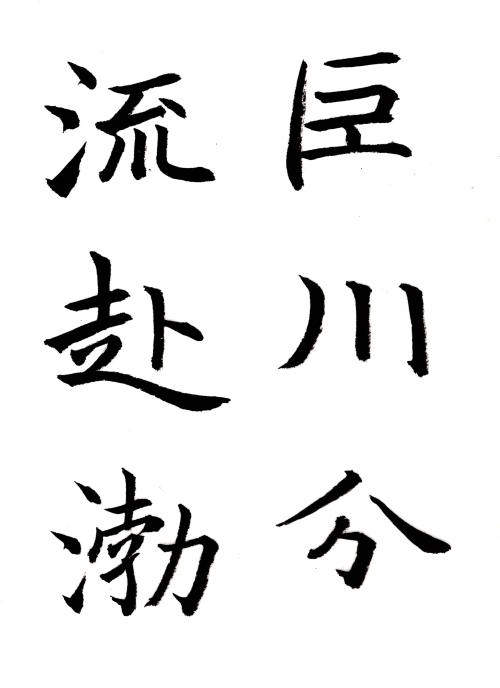 巨川分
流赴渤